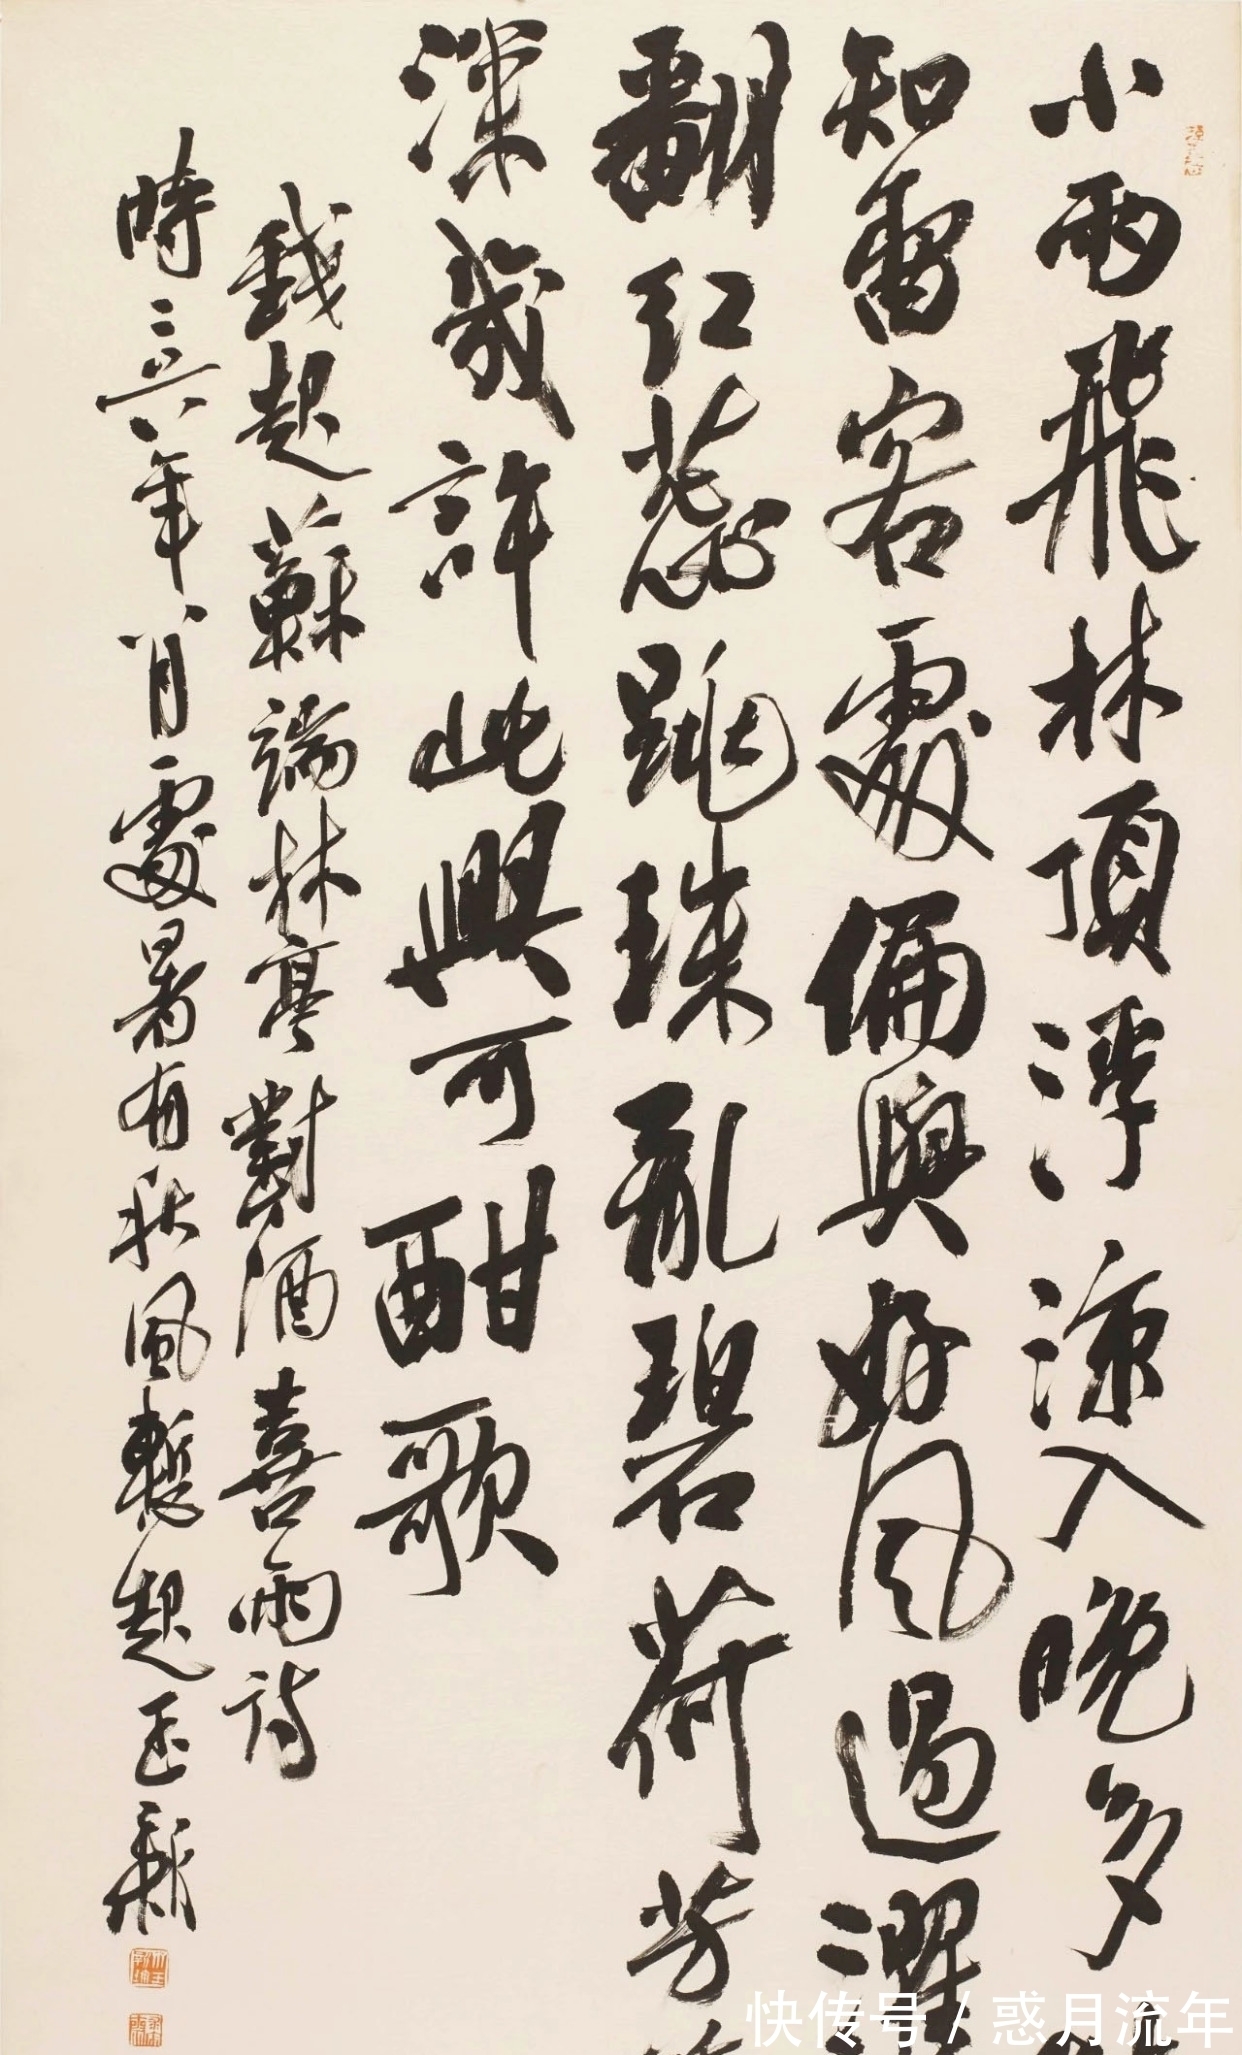 小雨飛林頂浮涼入晚多
知留客處偏與好風過濯
翻红蕊跳珠亂碧荷芳
深幾許此興可酣歌
錢起蘇端林亭對酒喜雨詩
時二〇一六年八月處暑有秋風暫起
快传号 / 惑月流年